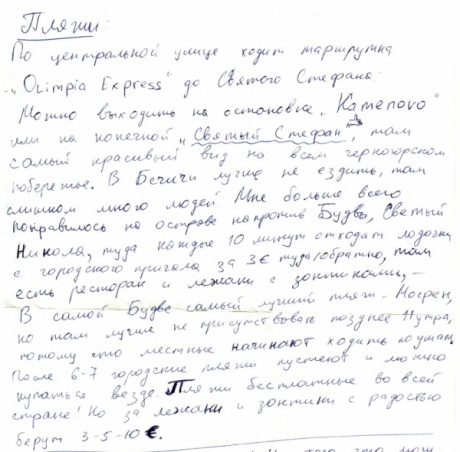 Пляжи:
По центральной улице ходит маршрутка
"Olimpia Express" до Святого Стефана.
Можно выходить на остановке "Kamenovo"
или на конечной "Святый Стефан", там
самый красивый вид на всем черногорском
побережье. В Бечичи лучше не ездить, там
слишком много людей. Мне больше всего
понравилось на острове напротив Будвы, Светый
Никола, туда каждые 10 минут отходят лодочки
с городского причала за 3€ туда/обратно, там
есть ресторан и лежаки с зонтиками, –
В самой Будве самый лучший пляж - Могрен,
но там лучше не присутствовать позднее 11 утра,
потому что местные начинают ходить по ушам.
После 6-7 городские пляжи пустеют и можно
купаться везде. Пляжи бесплатные во всей
стране! Но за лежаки и зонтики с радостью
берут 3-5-10 €.